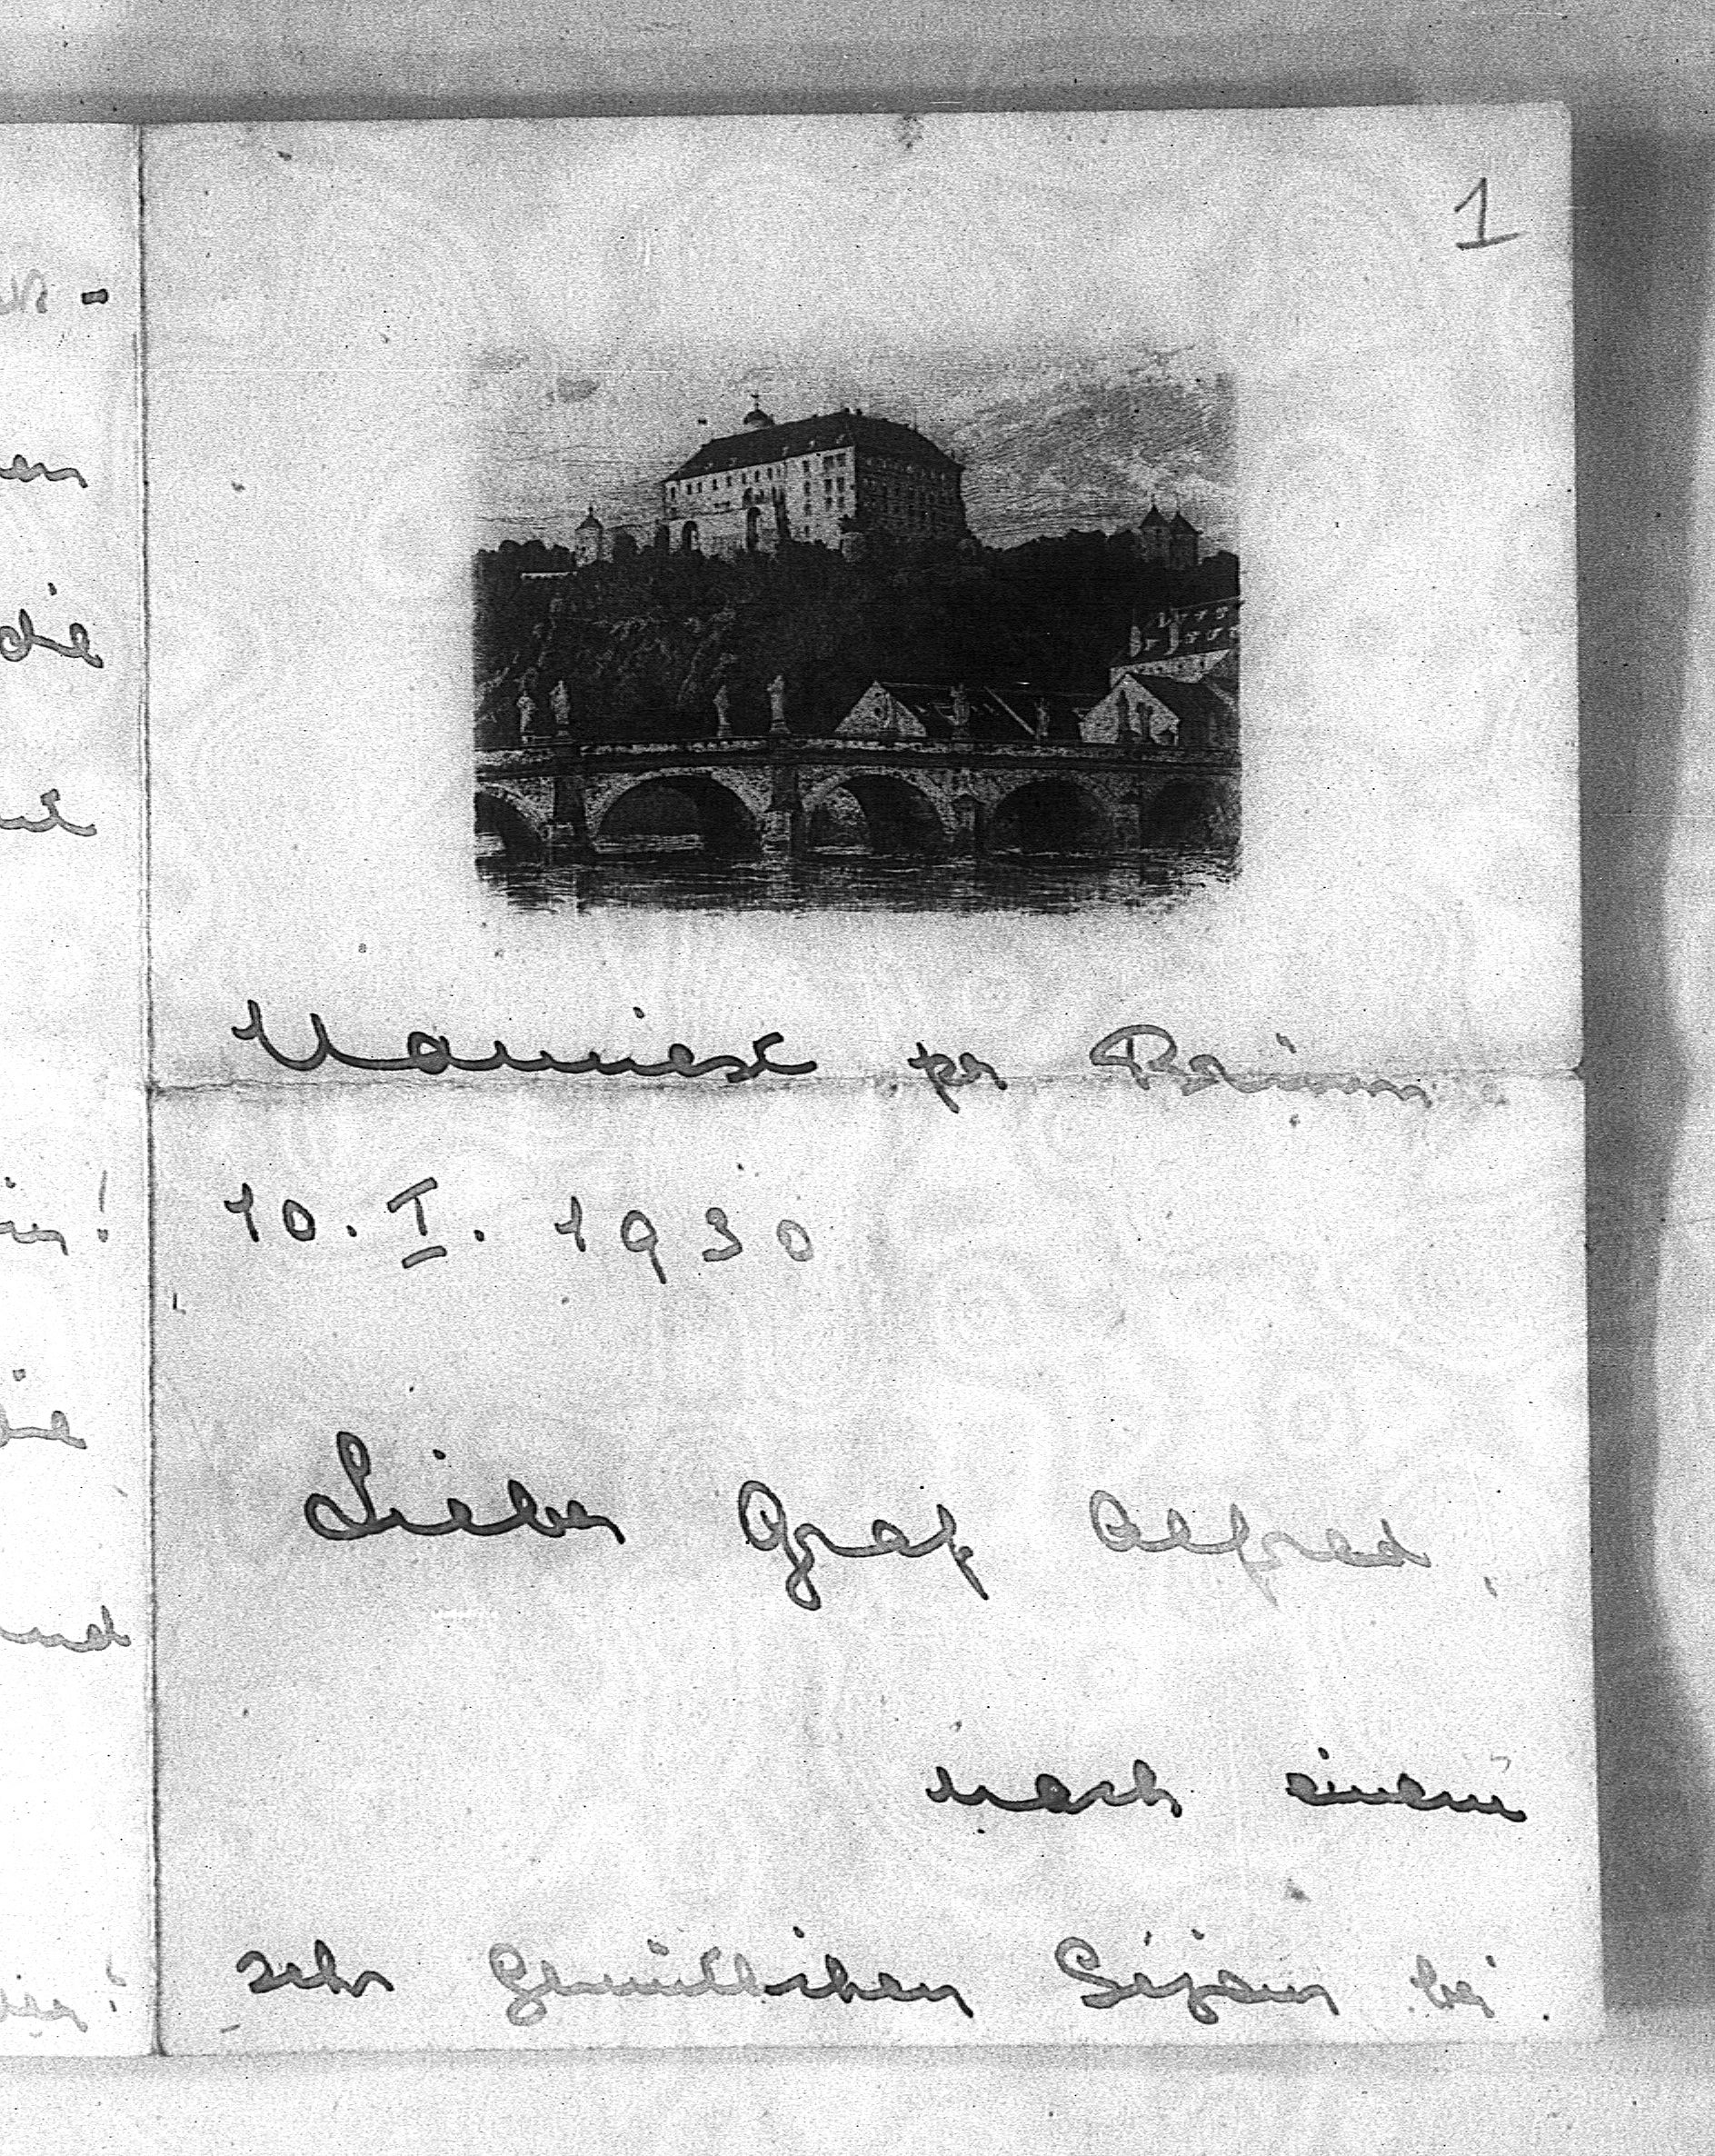 1
Namiest per Brünn
10. I. 1930
Lieber Graf Alfred,
nach einem
sehr gemütlichen Séjour bei